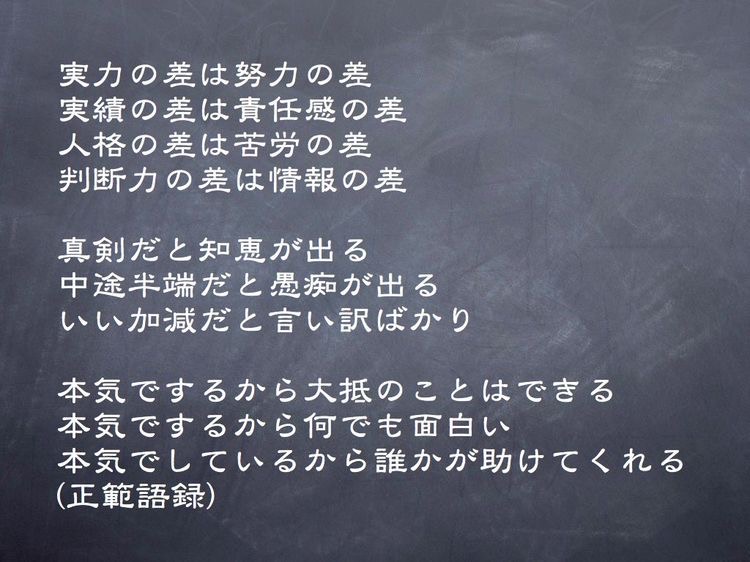 実力の差は努力の差
実績の差は責任感の差
人格の差は苦労の差
判断力の差は情報の差
真剣だと知恵が出る
中途半端だと愚痴が出る
いい加減だと言い訳ばかり
本気でするから大抵のことはできる
本気でするから何でも面白い
本気でしているから誰かが助けてくれる
(正範語録)